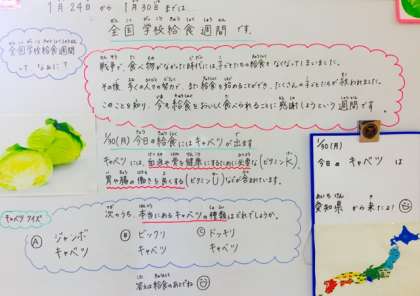 1月24日から1月30日までは
全国学校給食週間です。
全国学校給食週間
って なぁに？
戦争で、食べ物がなかった時代には子どもたちの給食もなくなってしまいました。
その後、多くの人の努力で、また給食を始めることができ、たくさんの子どもたちが救われました。
このことを知り、今も給食をおいしく食べられることに感謝しようという週間です。
1/30(月) 今日の給食にはキャベツが出ます
キャベツには、血液や骨を健康にするために大事な(ビタミンK)、
胃や腸の働きを良くする(ビタミンU)などが含まれています。
キャベツクイズ
次のうち、本当にあるキャベツの種類はどれでしょうか。
A ジャンボキャベツ
B ビックリキャベツ
C ドッキリキャベツ
答えは給食のあとでね
1/30(月)
今日の キャベツ は
愛知県 から来たよ!